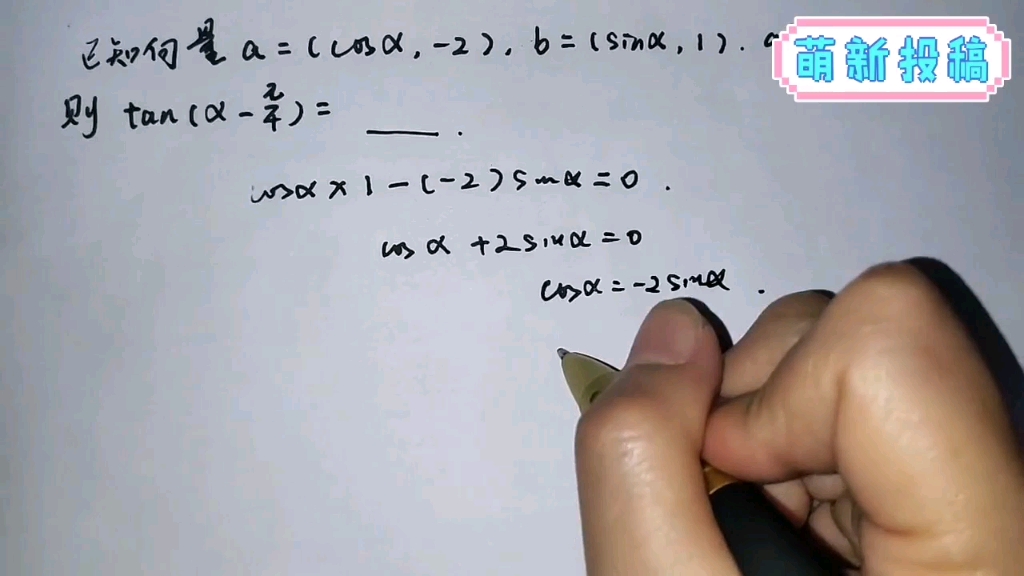 已知向量 a = (cosα, -2), b = (sinα, 1).
萌新投稿
则 tan(α - π/4) = ___ .
cosα × 1 - (-2) sinα = 0 .
cos α + 2 sinα = 0
cosα = -2 sinα .